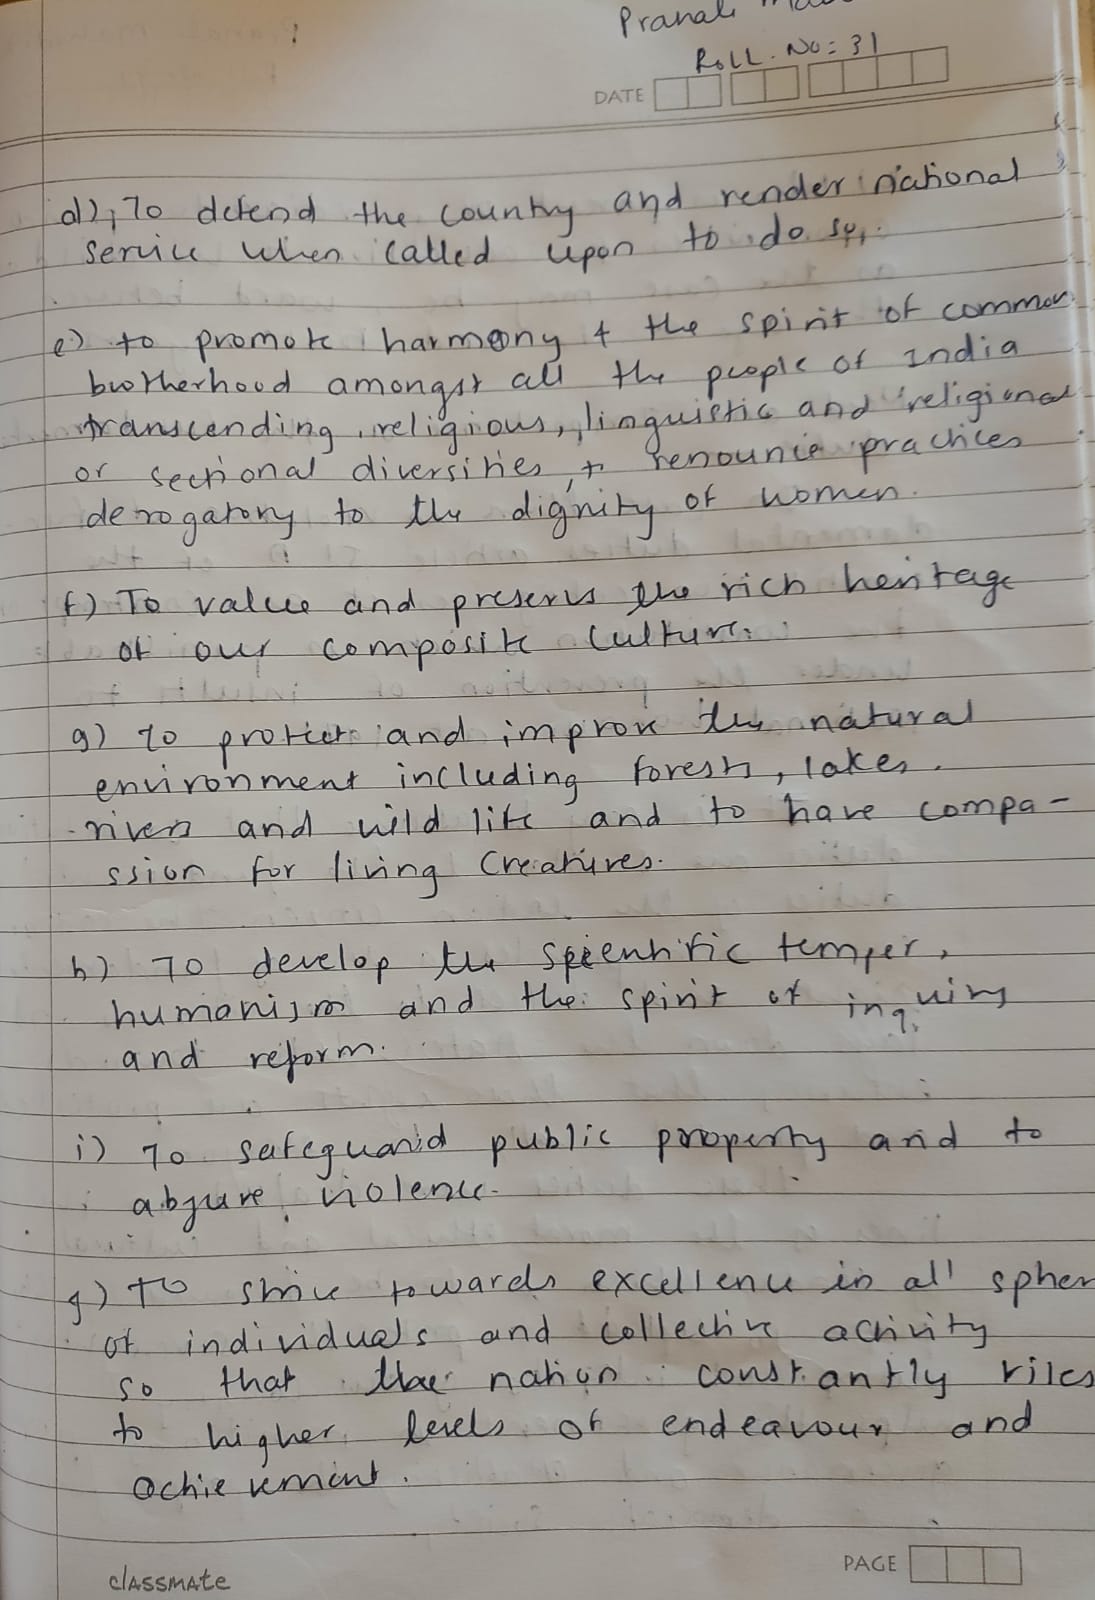 Pranali
Roll. No: 31
DATE
d) To defend the country and render national
service when called upon to do so,
e) to promote harmony & the spirit of common
brotherhood amongst all the people of India
transcending, religious, linguistic and religional
or sectional diversities, & renounce practices
derogatory to the dignity of women.
f) To value and preserve the rich heritage
of our composite culture.
g) To protect and improve the natural
environment including forests, lakes,
rivers and wild life and to have compa-
ssion for living Creatures.
h) To develop the scientific temper,
humanism and the spirit of inquiry
and reform.
i) To safeguard public property and to
abjure violence.
j) To strive towards excellence in all spher
of individuals and collective activity
so that the nation constantly rises
to higher levels of endeavour and
achievement.
classmate
PAGE